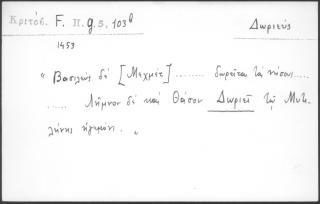 Κριτόβ. F. Π g 5, 103b Δωριεύς
1453
" Βασιλεὺς δὲ [Μεχμὲτ] ......... δωρεῖται τὰς νήσους .....
..... Λῆμνον δὲ καὶ Θάσον Δωριεῖ τῷ Μυτι
λήνης ἡγεμόνι. "